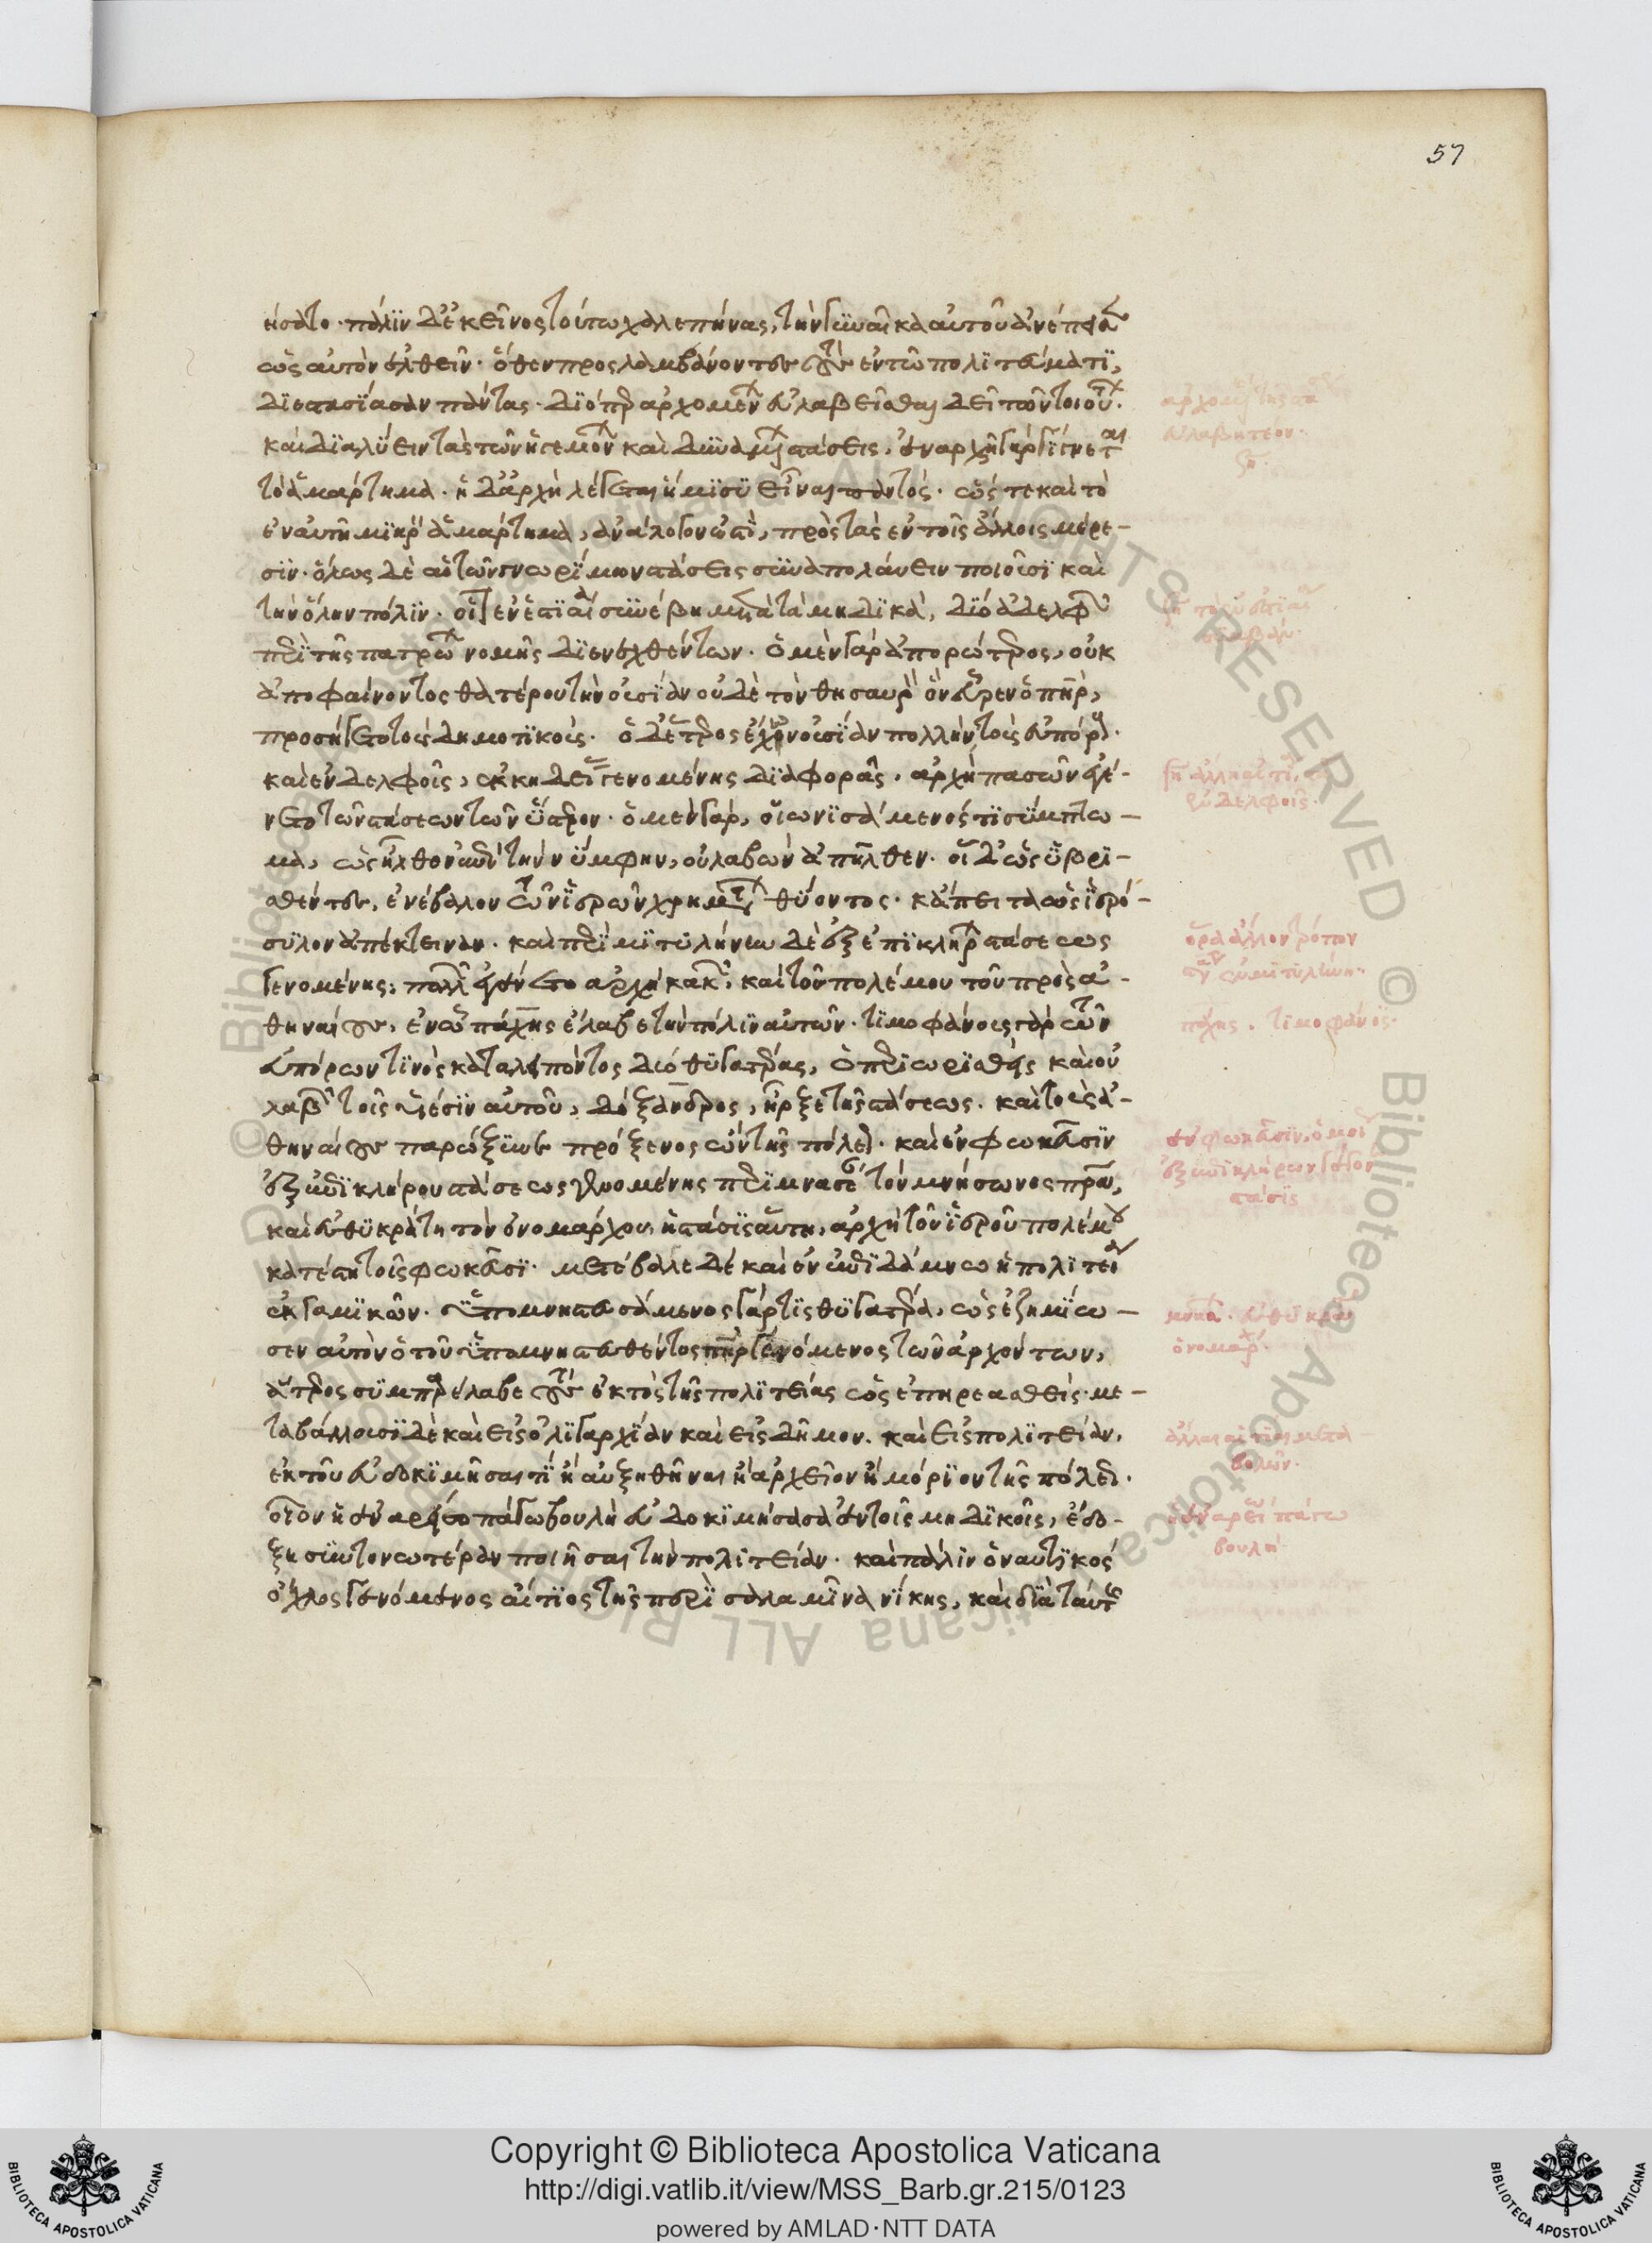 ήσατο· πάλιν δ' ἐκεῖνος τούτω χαλεπήνας, τὴν γυναῖκα αὐτοῦ ἀνέπεισεν
ὡς αὐτὸν ἐλθεῖν· ὅθεν προσλαμβάνοντες τοὺς ἐν τῶ πολιτεύματι,
διεστασίασαν πάντας· διόπερ ἀρχομένων εὐλαβεῖσθαι δεῖ τῶν τοιούτων·
καὶ διαλύειν τὰς τῶν ἡγεμόνων καὶ δυναμένων στάσεις. ἐν ἀρχῆ γὰρ γίγνεται
τὸ ἁμάρτημα· ἡ δ' ἀρχὴ λέγεται ἥμισυ εἶναι παντός· ὥς τε καὶ τὸ
ἐν αὐτῆ μικρὸν ἁμάρτημα, ἀνάλογον ἐστὶ, πρὸς τὰς ἐν τοῖς ἄλλοις μέρε-
σιν· ὅλως δὲ αἱ τῶν γνωρίμων στάσεις συναπολαύειν ποιοῦσι καὶ
τὴν ὅλην πόλιν· οἷον ἐν ἑστιαία συνέβη μετὰ τὰ μηδικά, δύο ἀδελφῶν
περὶ τῆς πατρώων νομῆς διενεχθέντων· ὁ μὲν γὰρ ἀπορώτερος, οὐκ
ἀποφαίνοντος θατέρου τὴν οὐσίαν οὐδὲ τὸν θησαυρὸν ὃν εὗρεν ὁ πατὴρ,
προσήγετο τοὺς δημοτικούς· ὁ δ' ἕτερος ἔχων οὐσίαν πολλὴν τοὺς εὐπόρους·
καὶ ἐν δελφοῖς, ἐκ κηδείας γενομένης διαφορᾶς, ἀρχὴ πασῶν ἐγέ-
νετο τῶν στάσεων τῶν ὕστερον· ὁ μὲν γὰρ, οἰωνισάμενός τι σύμπτω-
μα, ὡς ἦλθεν ἐπὶ τὴν νύμφην, οὐ λαβὼν ἀπῆλθεν· οἱ δ' ὡς ὑβρι-
σθέντες, ἐνέβαλον τῶν ἱερῶν χρημάτων θύοντος· κἄπειτα ὡς ἱερό-
συλον ἀπέκτειναν· καὶ περὶ μιτυλήνην δὲ ἐξ ἐπικλήρων στάσεως
γενομένης· πολλῶν ἐγένετο ἀρχὴ κακῶν, καὶ τοῦ πολέμου τοῦ πρὸς ἀ-
θηναίους, ἐν ὧ πάχης ἔλαβε τὴν πόλιν αὐτῶν· τιμοφάνους γὰρ τῶν
εὐπόρων τινὸς καταλιπόντος δύο θυγατέρας, ὁ περιωσθεὶς καὶ οὐ
λαβὼν τοῖς υἱέσιν αὐτοῦ, δόξανδρος, ἦρξε τῆς στάσεως. καὶ τοὺς ἀ-
θηναίους παρώξυνε πρόξενος ὢν τῆς πόλεως· καὶ ἐν φωκεῦσιν
ἐξ ἐπικλήρου στάσεως γενομένης περὶ μνασέαν τὸν μνήσωνος πατέρα,
καὶ εὐθυκράτη τὸν ὀνομάρχου, ἡ στάσις αὕτη, ἀρχὴ τοῦ ἱεροῦ πολέμου
κατέστη τοῖς φωκεῦσι· μετέβαλε δὲ καὶ ἐν ἐπιδάμνω ἡ πολιτεία
ἐκ γαμικῶν· ὑπομνηστευσάμενος γάρ τις θυγατέρα, ὡς ἐζημίω-
σεν αὐτὸν ὁ τοῦ ὑπομνηστευθέντος πατὴρ γενόμενος τῶν ἀρχόντων,
ἅτερος συμπαρέλαβε τοὺς ἐκτὸς τῆς πολιτείας ὡς ἐπηρεασθείς· με-
ταβάλλουσι δὲ καὶ εἰς ὀλιγαρχίαν καὶ εἰς δῆμον· καὶ εἰς πολιτείαν,
ἐκ τοῦ εὐδοκιμῆσαί τι ἢ αὐξηθῆναι ἢ ἀρχεῖον ἢ μόριον τῆς πόλεως·
οἷον ἡ ἐν ἀρείω πάγω βουλὴ εὐδοκιμήσασα ἐν τοῖς μηδικοῖς, ἔδο-
ξε συντονωτέραν ποιῆσαι τὴν πολιτείαν· καὶ πάλιν ὁ ναυτικὸς
ὄχλος γενόμενος αἴτιος τῆς περὶ σαλαμῖνα νίκης, καὶ διὰ ταύτης
εὐλαβητέον·
ἐν δελφοῖς·
ὅρα ἄλλον τρόπον
ἐν μιτυλήνη·
πάχης. τιμοφάνους·
ἐν φωκεῦσιν, ὁμοίως
ἐξ ἐπικλήρων
στάσις
ἄλλαι αἰτίαι μετα-
βολῶν·
ἡ ἐν ἀρείω πάγω
βουλή·
57
Copyright © Biblioteca Apostolica Vaticana
http://digi.vatlib.it/view/MSS_Barb.gr.215/0123
powered by AMLAD·NTT DATA
BIBLIOTECA APOSTOLICA VATICANA
BIBLIOTECA APOSTOLICA VATICANA